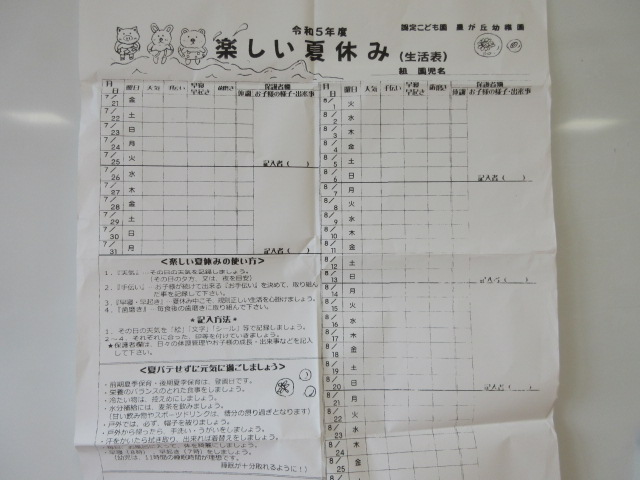 令和5年度
楽しい夏休み (生活表)
認定こども園 星が丘幼稚園
組 園児名
月 日 曜日 天気 手伝い 早寝早起き 歯磨き 保護者欄 体調 お子様の様子・出来事
7/21 金
7/22 土
7/23 日
7/24 月
7/25 火 記入者( )
7/26 水
7/27 木
7/28 金
7/29 土
7/30 日
7/31 月 記入者( )
<楽しい夏休みの使い方>
1.『天気』…その日の天気を記録しましょう。
(その日の夕方、又は、夜を目安)
2.『手伝い』…お子様が続けて出来る『お手伝い』を決めて、取り組んだ事を記録して下さい。
3.『早寝・早起き』…夏休み中こそ、規則正しい生活を心掛けましょう。
4.『歯磨き』…毎食後の歯磨きに取り組んで下さい。
★記入方法★
1.その日の天気を「絵」「文字」「シール」等で記録しましょう。
2~4.それぞれに合った、印等を付けていきましょう。
★保護者欄は、日々の体調管理やお子様の成長・出来事などを記入して下さい。
<夏バテせずに元気に過ごしましょう>
・前期夏季保育・後期夏季保育は、登園日です。
・栄養のバランスのとれた食事をしましょう。
・冷たい物は、控えめにしましょう。
・水分補給には、麦茶を飲みましょう。
(甘い飲み物やスポーツドリンクは、糖分の摂り過ぎとなります)
・戸外では、必ず、帽子を被りましょう。
・戸外から帰ったら、手洗い・うがいをしましょう。
・汗をかいたら拭き取り、出来れば着替えをしましょう。
・早寝(8時)、早起き(7時)をしましょう。
(幼児は、11時間の睡眠時間が理想です。
睡眠が十分取れるように!)
月 日 曜日 天気 手伝い 早寝早起き 歯磨き 保護者欄 体調 お子様の様子・出来事
8/1 火
8/2 水
8/3 木
8/4 金
8/5 土
8/6 日 記入者( )
8/7 月
8/8 火
8/9 水
8/10 木
8/11 金
8/12 土
8/13 日 記入者( )
8/14 月
8/15 火
8/16 水
8/17 木
8/18 金
8/19 土
8/20 日 記入者( )
8/21 月
8/22 火
8/23 水
8/24 木
8/25 金